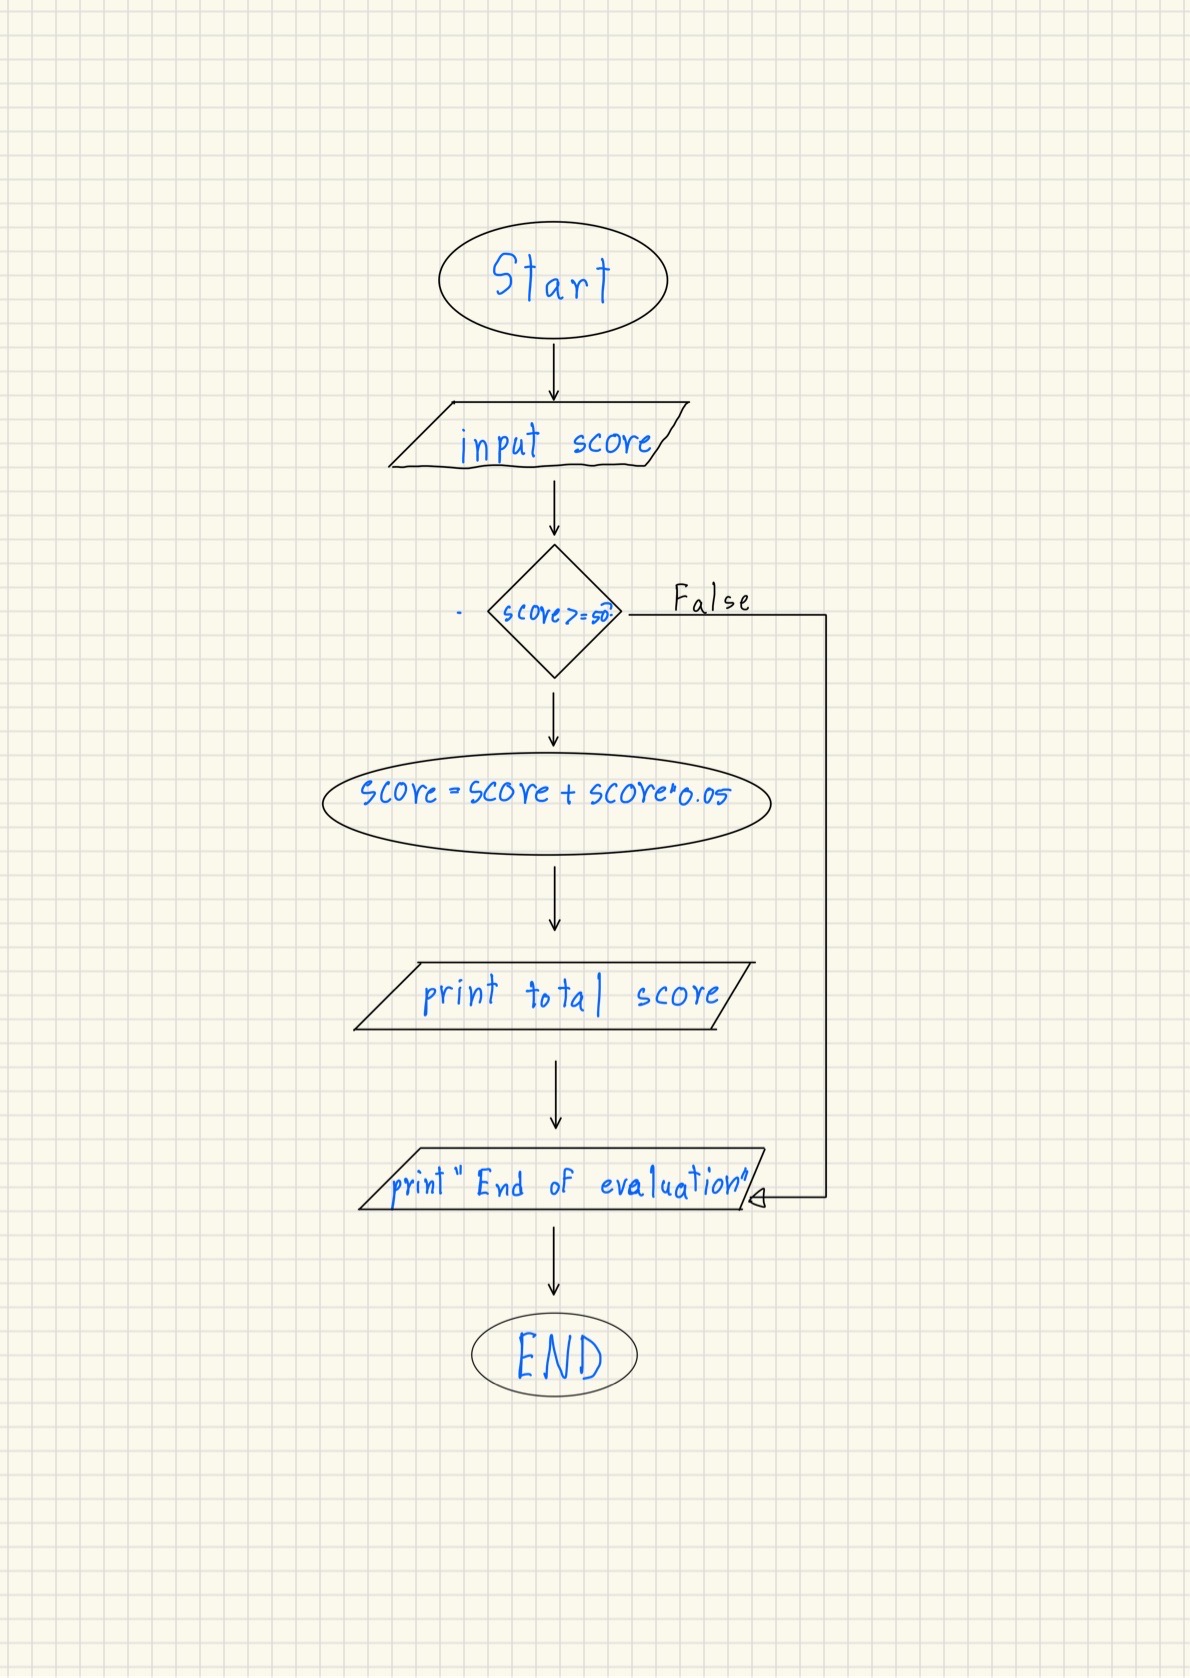 Start
input score
score >= 50?
False
score = score + score*0.05
print total score
print "End of evaluation"
END